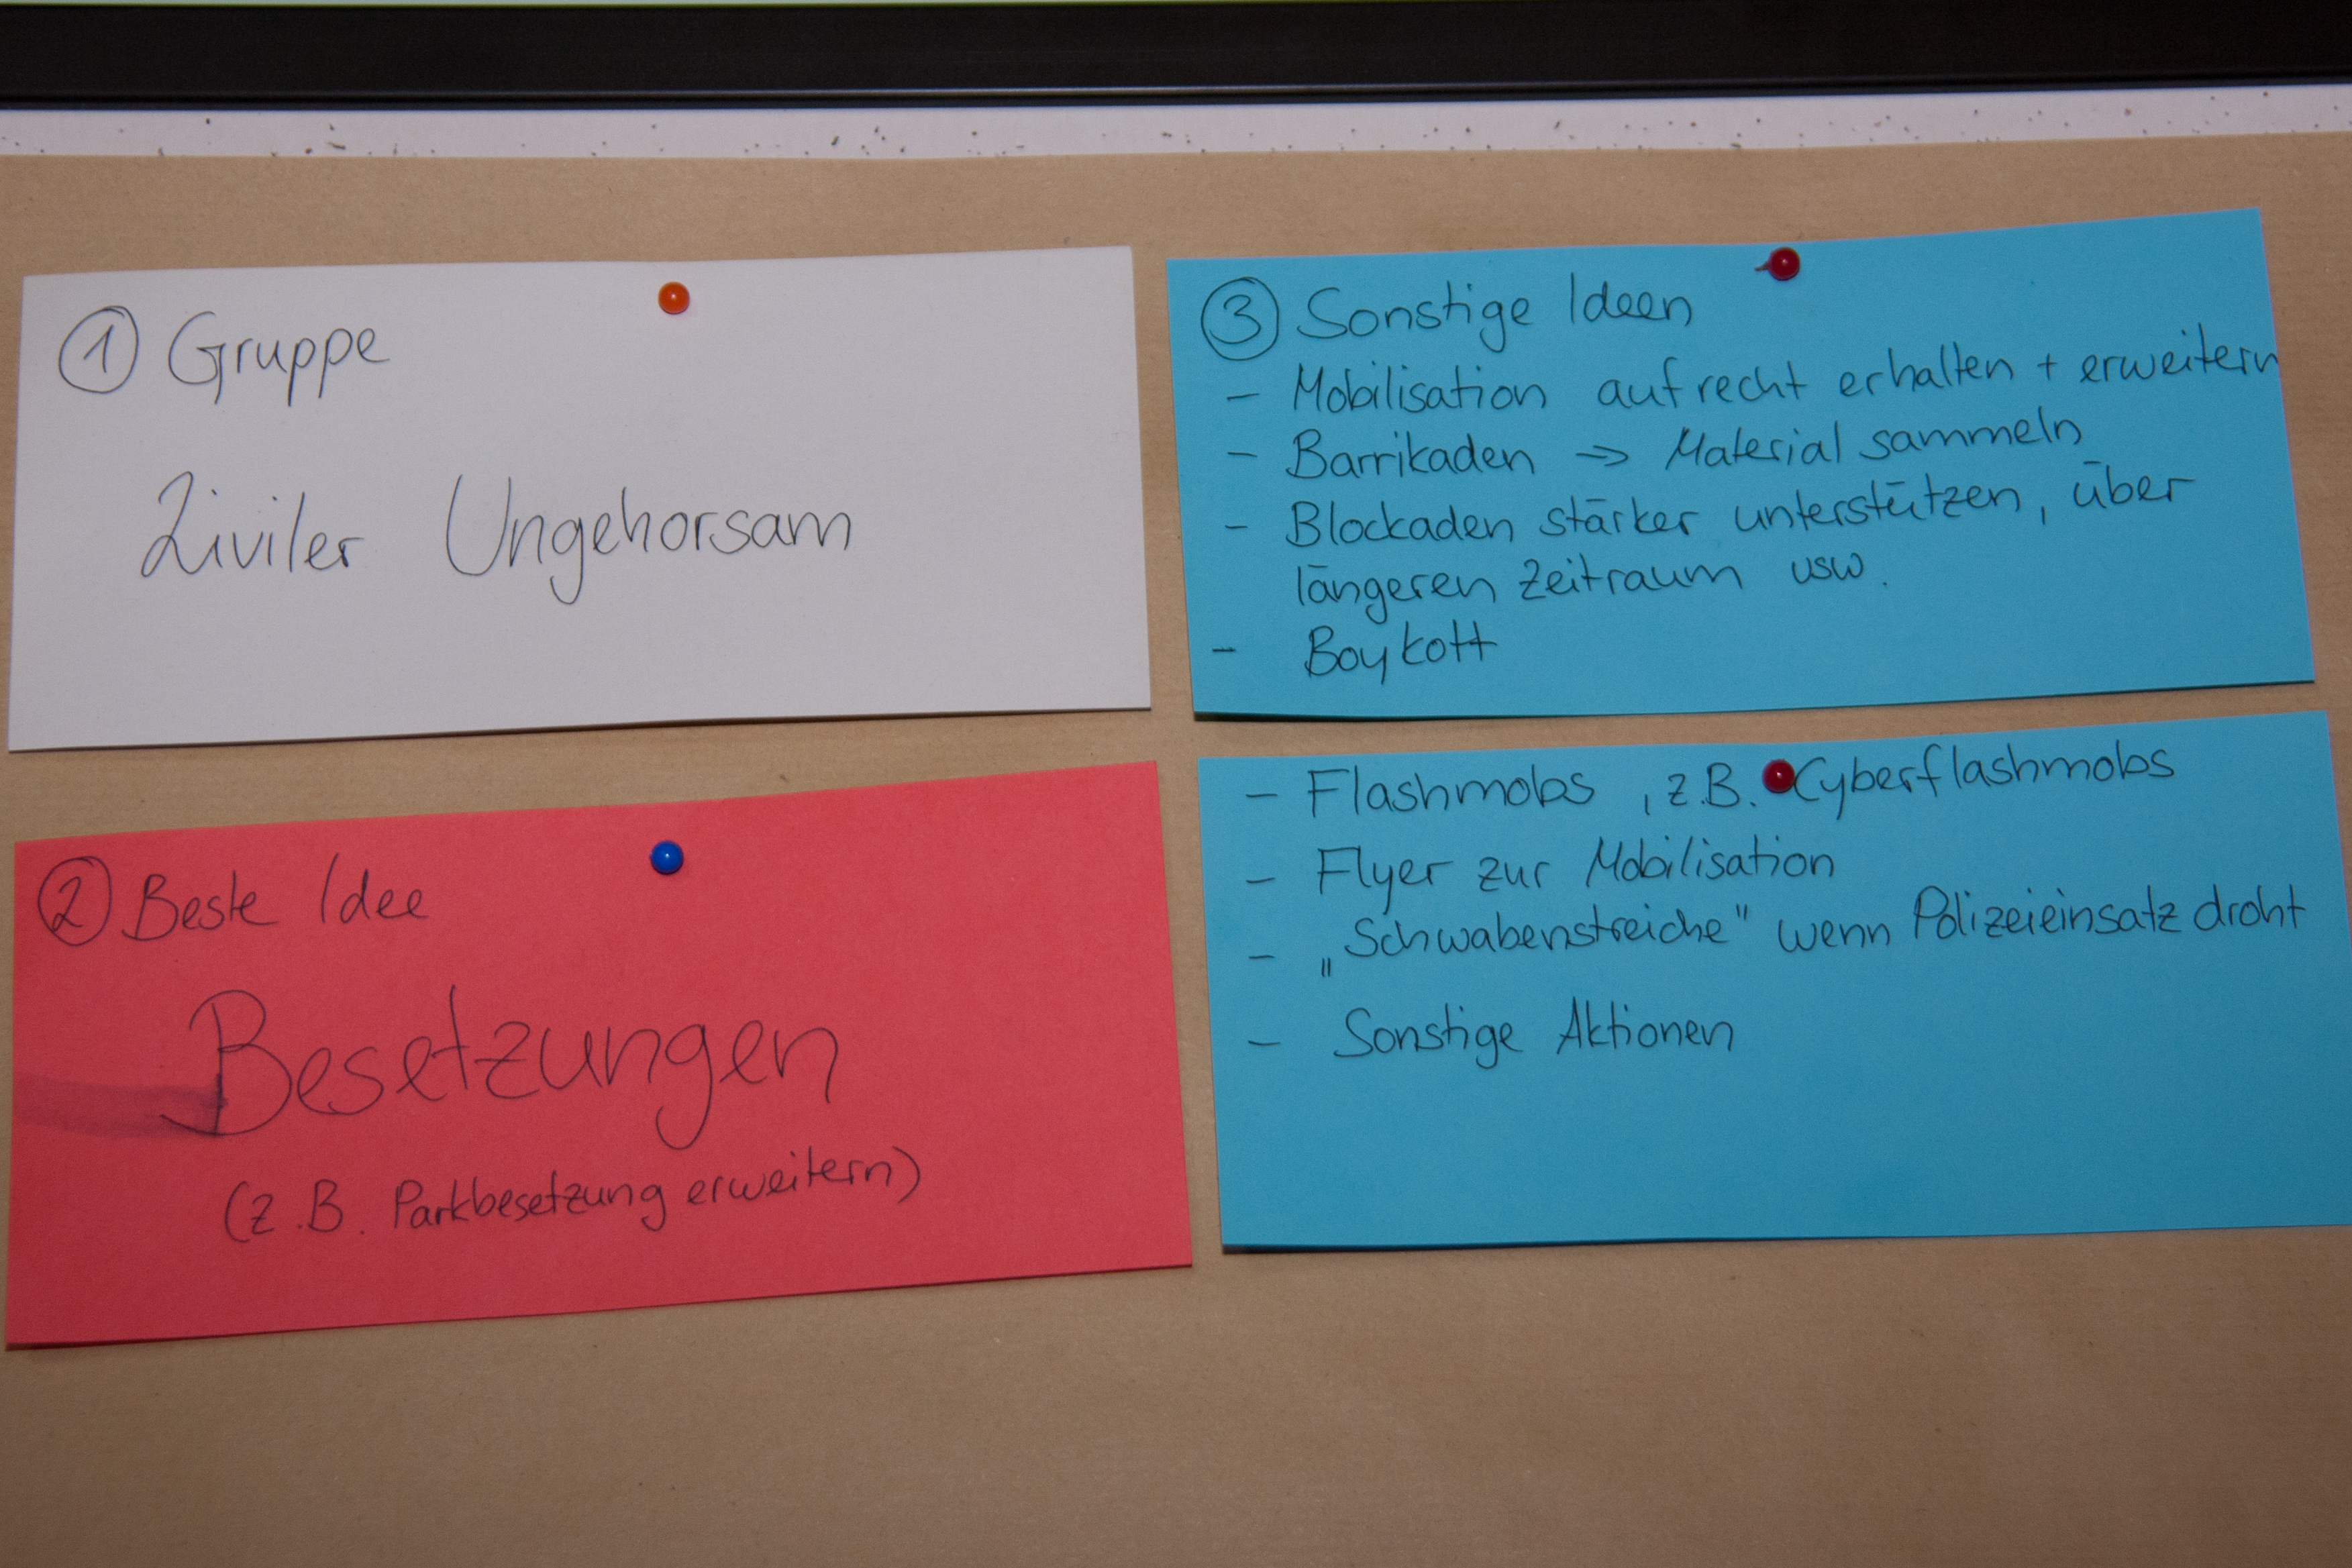 ① Gruppe
Ziviler Ungehorsam
② Beste Idee
Besetzungen
(z.B. Parkbesetzung erweitern)
③ Sonstige Ideen
- Mobilisation aufrecht erhalten + erweitern
- Barrikaden → Material sammeln
- Blockaden stärker unterstützen, über
längeren Zeitraum usw.
- Boykott
- Flashmobs, z.B. Cyberflashmobs
- Flyer zur Mobilisation
- „Schwabenstreiche" wenn Polizeieinsatz droht
- Sonstige Aktionen